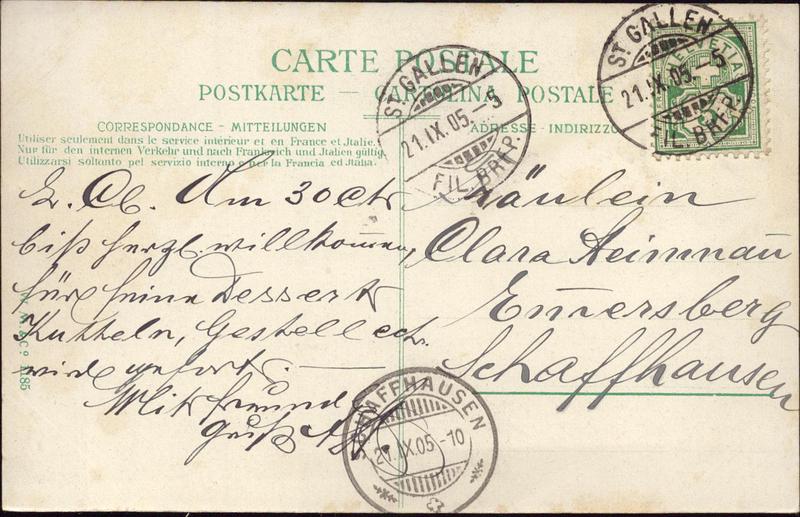 CARTE POSTALE
POSTKARTE — CARTOLINA POSTALE
CORRESPONDANCE - MITTEILUNGEN
ADRESSE - INDIRIZZO
Utiliser seulement dans le service intérieur et en France et Italie.
Nur für den internen Verkehr und nach Frankreich und Italien gültig.
Utilizzarsi soltanto pel servizio interno e per la Francia ed Italia.
ST. GALLEN
21.IX.05.-5
FIL. BRFP.
ST. GALLEN
21.IX.05.-5
FIL. BRFP.
HELVETIA
L. Cl. Am 30 ct
biß herzl. willkommen,
für feine Dessert
Kutteln, Gestell
wird
Mit freund
Gruß
Fräulein
Clara Heimnau
Emmersberg
Schaffhausen
SCHAFFHAUSEN
21.IX.05-10
1185